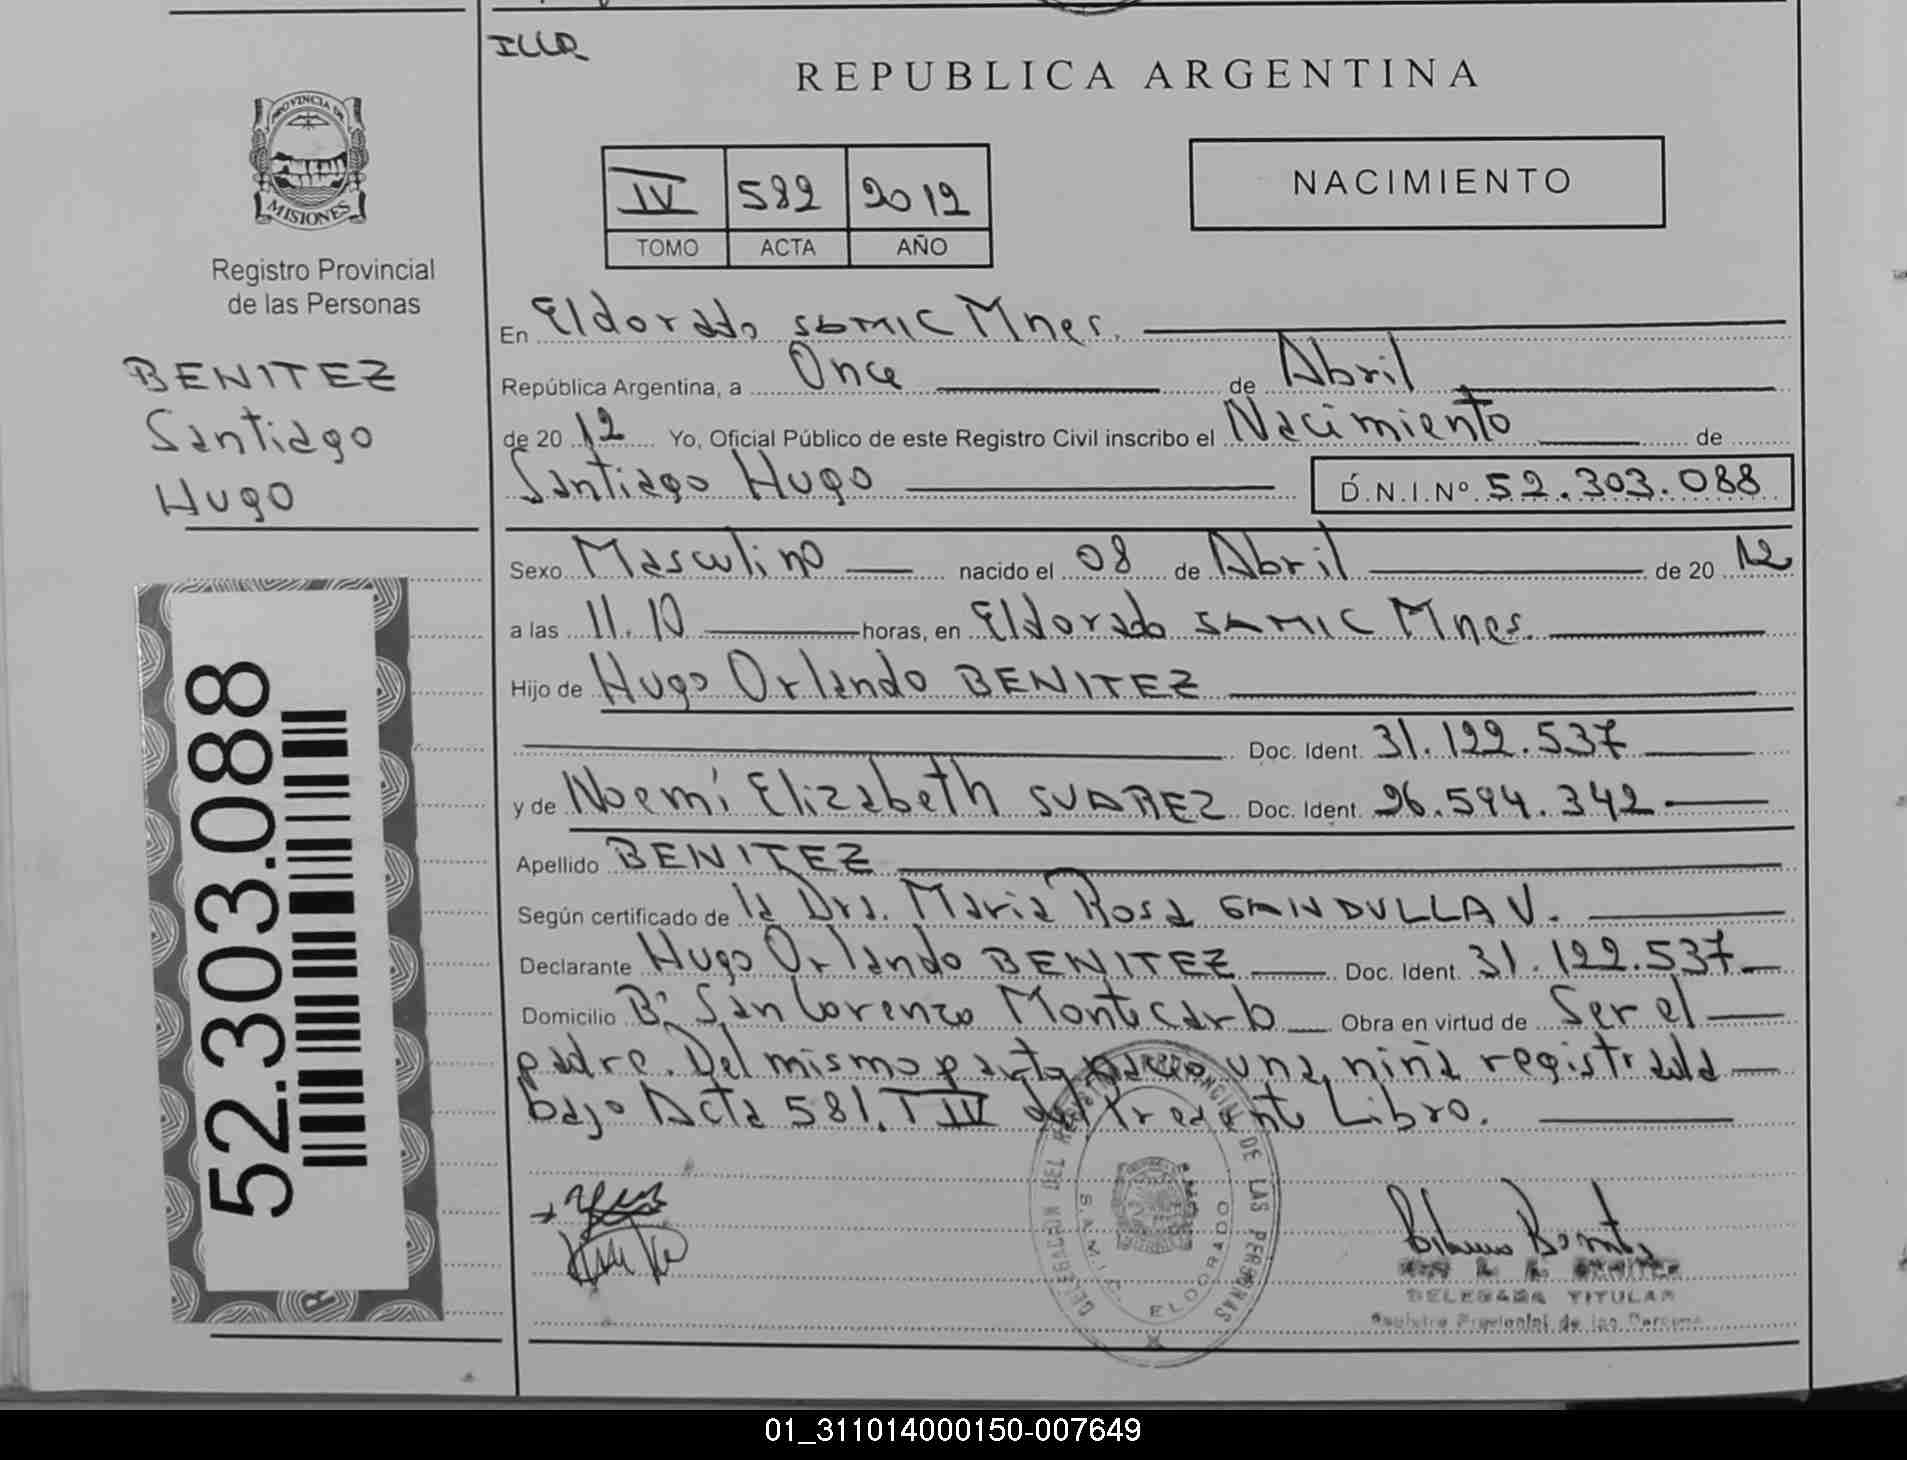 ILLR
REPUBLICA ARGENTINA
PROVINCIA DE
MISIONES
Registro Provincial
de las Personas
BENITEZ
Santiago
Hugo
IV 582 2012
TOMO ACTA AÑO
NACIMIENTO
En Eldorado SAMIC Mnes.
República Argentina, a Once de Abril
de 20 12 Yo, Oficial Público de este Registro Civil inscribo el Nacimiento de
Santiago Hugo D.N.I.Nº 52.303.088
Sexo Masculino nacido el 08 de Abril de 20 12
a las 11.10 horas, en Eldorado SAMIC Mnes.
Hijo de Hugo Orlando BENITEZ
Doc. Ident. 31.122.537
y de Noemí Elizabeth SUAREZ Doc. Ident. 26.594.342
Apellido BENITEZ
Según certificado de la Dra. Maria Rosa GANDULLA V.
Declarante Hugo Orlando BENITEZ Doc. Ident. 31.122.537
Domicilio Bº San Lorenzo Montecarlo Obra en virtud de Ser el
padre. Del mismo parto nacio una niña registrada
bajo Acta 581. T IV del Presente Libro.
52.303.088
DELEGACION DEL REGISTRO PROVINCIAL DE LAS PERSONAS
S.A.M.I.C. ELDORADO
DELEGADA TITULAR
Registro Provincial de las Personas
01_311014000150-007649